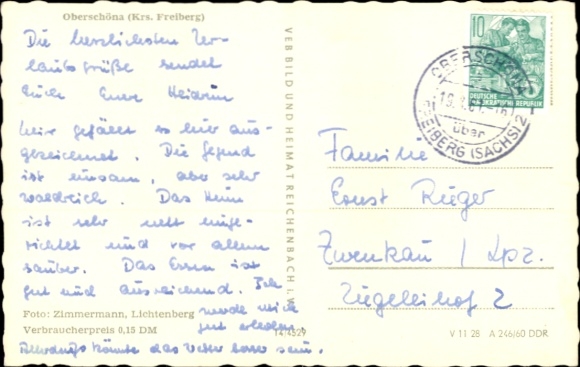 Oberschöna (Krs. Freiberg)
Die herzlichsten Ur-
laubsgrüße sendet
Euch Eure Heidrun
Mir gefällt es hier aus-
gezeichnet. Die Gegend
ist einsam, aber sehr
waldreich. Das Heim
ist sehr nett einge-
richtet und vor allem
sauber. Das Essen ist
gut und ausreichend. Ich
werde mich
gut erholen.
Allerdings könnte das Wetter besser sein.
Foto: Zimmermann, Lichtenberg
Verbraucherpreis 0,15 DM
14/4529
VEB BILD UND HEIMAT REICHENBACH i. V.
10
DEUTSCHE
DEMOKRATISCHE REPUBLIK
OBERSCHÖNA
über
FREIBERG (SACHS) 2
Familie
Ernst Rüger
Zwenkau / Lpz.
Ziegeleihof 2
V 11 28 A 246/60 DDR